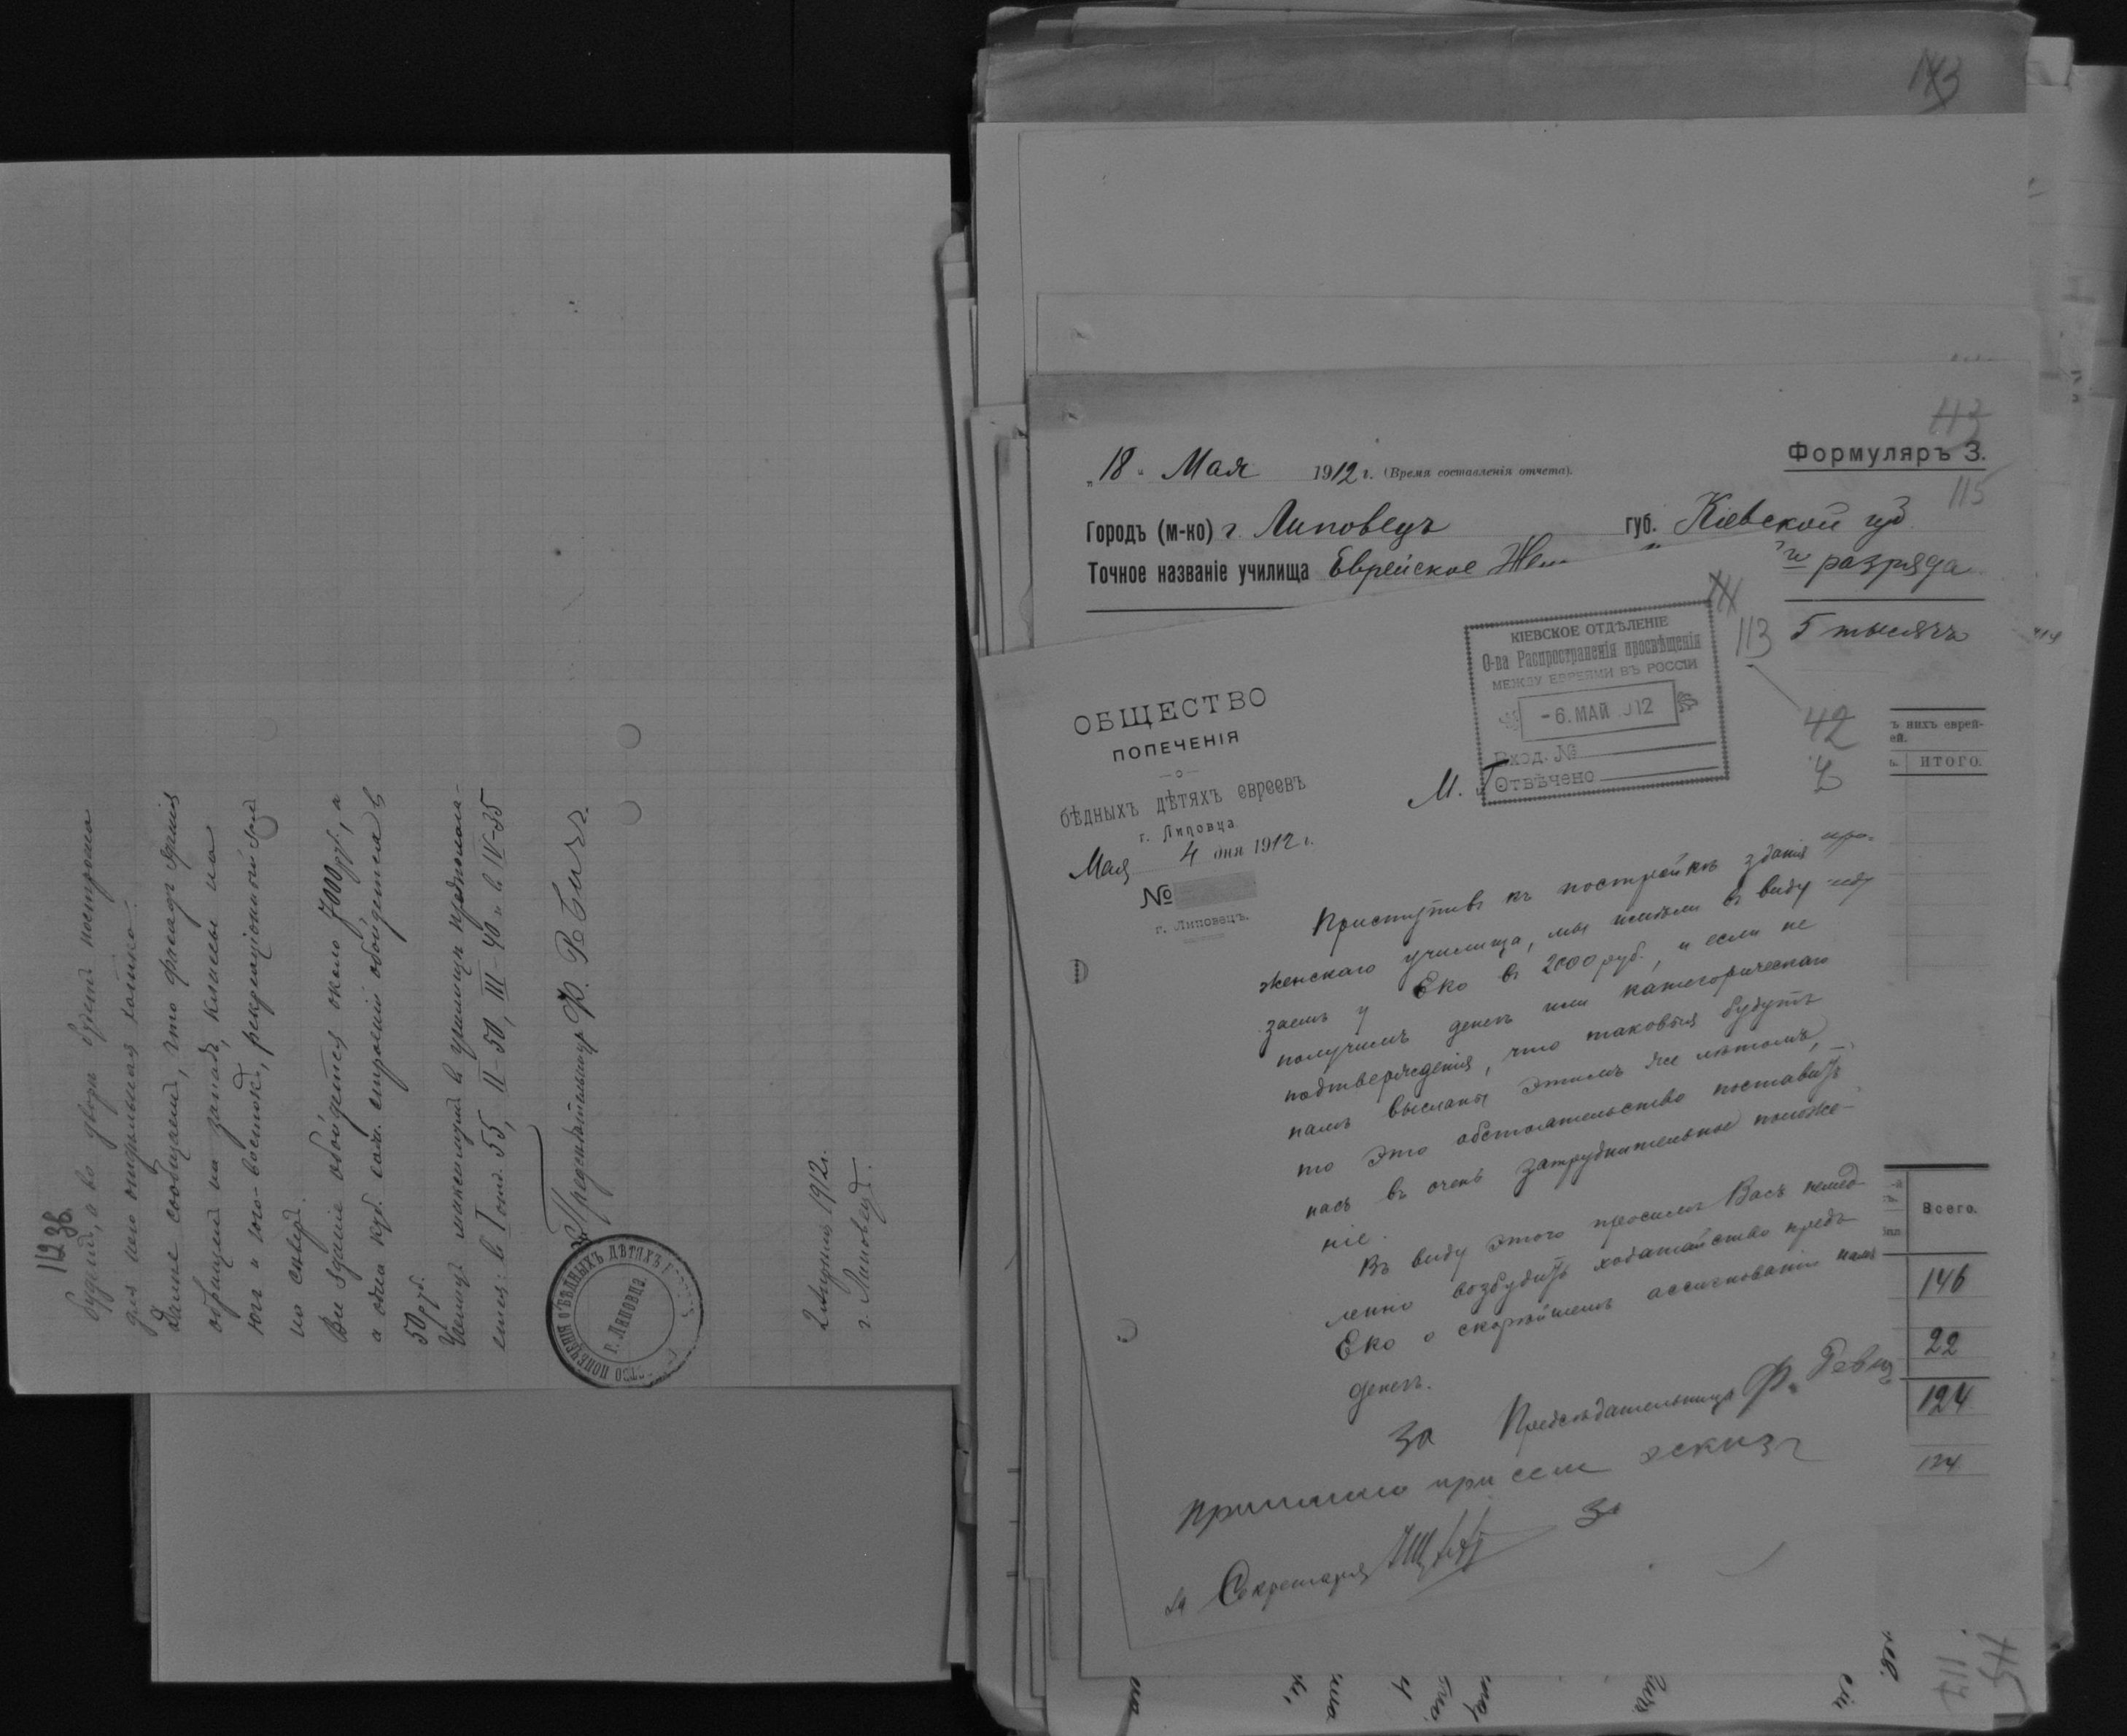 112
36
будит, а во дворе будет построена
для него отдельная
Далее сообщаем, что фасад здания
обращен на запад, классы на
юг и юго-восток, рекреационный зал
на север.
Все здание обойдется около 7000 руб., а
а одна куб. саж. строений обойдется в
50 руб.
Учениц максимум в училище предпола-
гается: в I отд. 55, II-50, III-40 и в IV-35
Председательница Ф.
ОБЩЕСТВО ПОПЕЧЕНІЯ О БѢДНЫХЪ ДѢТЯХЪ
г. Липовца
2 1912 г.
г. Липовец.
143
113
Формуляръ 3.
115
„18" Мая 1912 г. (Время составленія отчета).
Городъ (м-ко) г. Липовецъ губ. Кіевской губ.
Точное названіе училища Еврейское Жен
разряда
5 тысячъ
КІЕВСКОЕ ОТДѢЛЕНІЕ
О-ва Распространенія просвѣщенія
МЕЖДУ ЕВРЕЯМИ ВЪ РОССІИ
-6. МАЙ 912
Вход. №
Отвѣчено
113
42
ОБЩЕСТВО
ПОПЕЧЕНІЯ
—о—
бѢдныхъ дѢтяхъ евреевъ
г. Липовца
Мая 4 дня 1912 г.
№
г. Липовецъ.
М.
Приступивъ къ постройкѣ зданія
женскаго училища, мы имѣли въ виду
заемъ у Еко въ 2000 руб., и если не
получимъ денегъ или категорическаго
подтвержденія, что таковыя будутъ
намъ высланы этимъ же лѣтомъ,
то это обстоятельство поставитъ
насъ въ очень затруднительное положе-
ніе.
Въ виду этого просимъ Васъ немед-
ленно возбудить ходатайство предъ
Еко о скорѣйшемъ ассигнованіи намъ
денегъ.
За Предсѣдательница Ф.
при семъ эскизъ
За Секретаря
ъ нихъ еврей-
ей.
ИТОГО.
Всего.
146
22
124
124